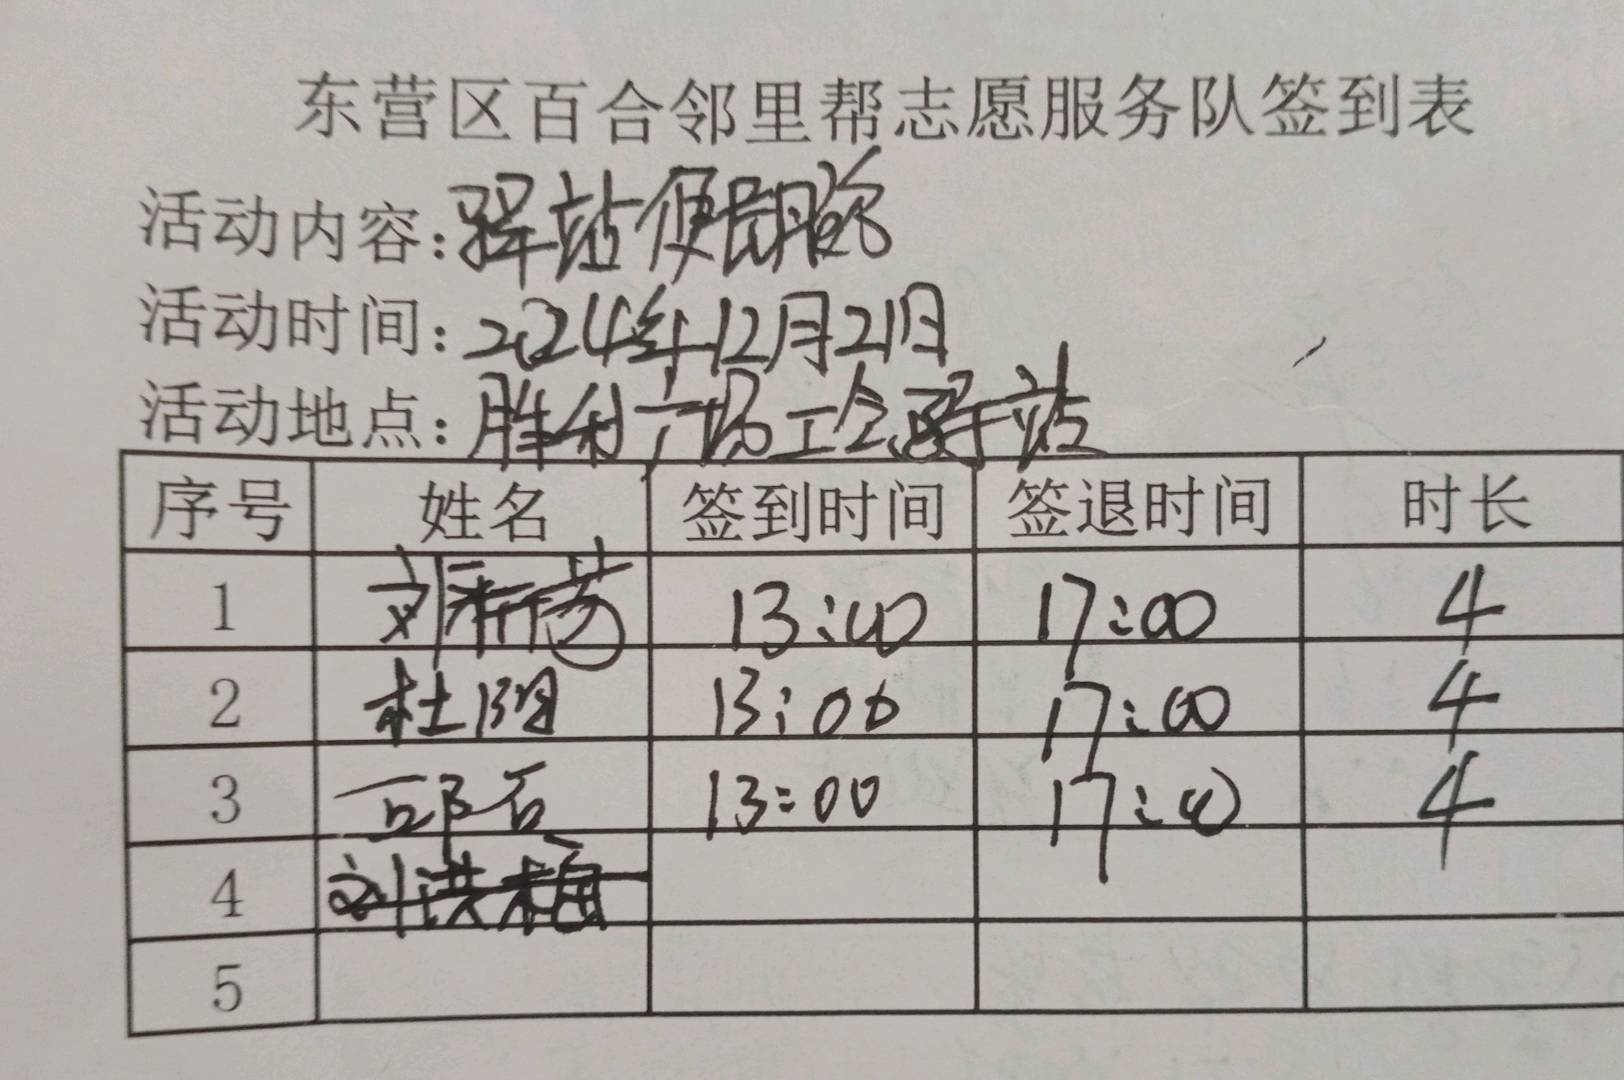 东营区百合邻里帮志愿服务队签到表
活动内容:驿站便民服务
活动时间:2024年12月21日
活动地点:胜利广场工会驿站
序号 姓名 签到时间 签退时间 时长
1 刘新芳 13:00 17:00 4
2 杜阳 13:00 17:00 4
3 13:00 17:00 4
4 刘洪梅
5